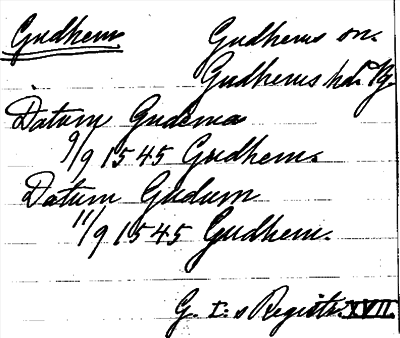 Gudhem Gudhems sn.
Gudhems hd. Vg.
Datum Gudema
9/9 1545 Gudhem.
Datum Gudum
11/9 1545 Gudhem.
G. I:s Registr. XVII.